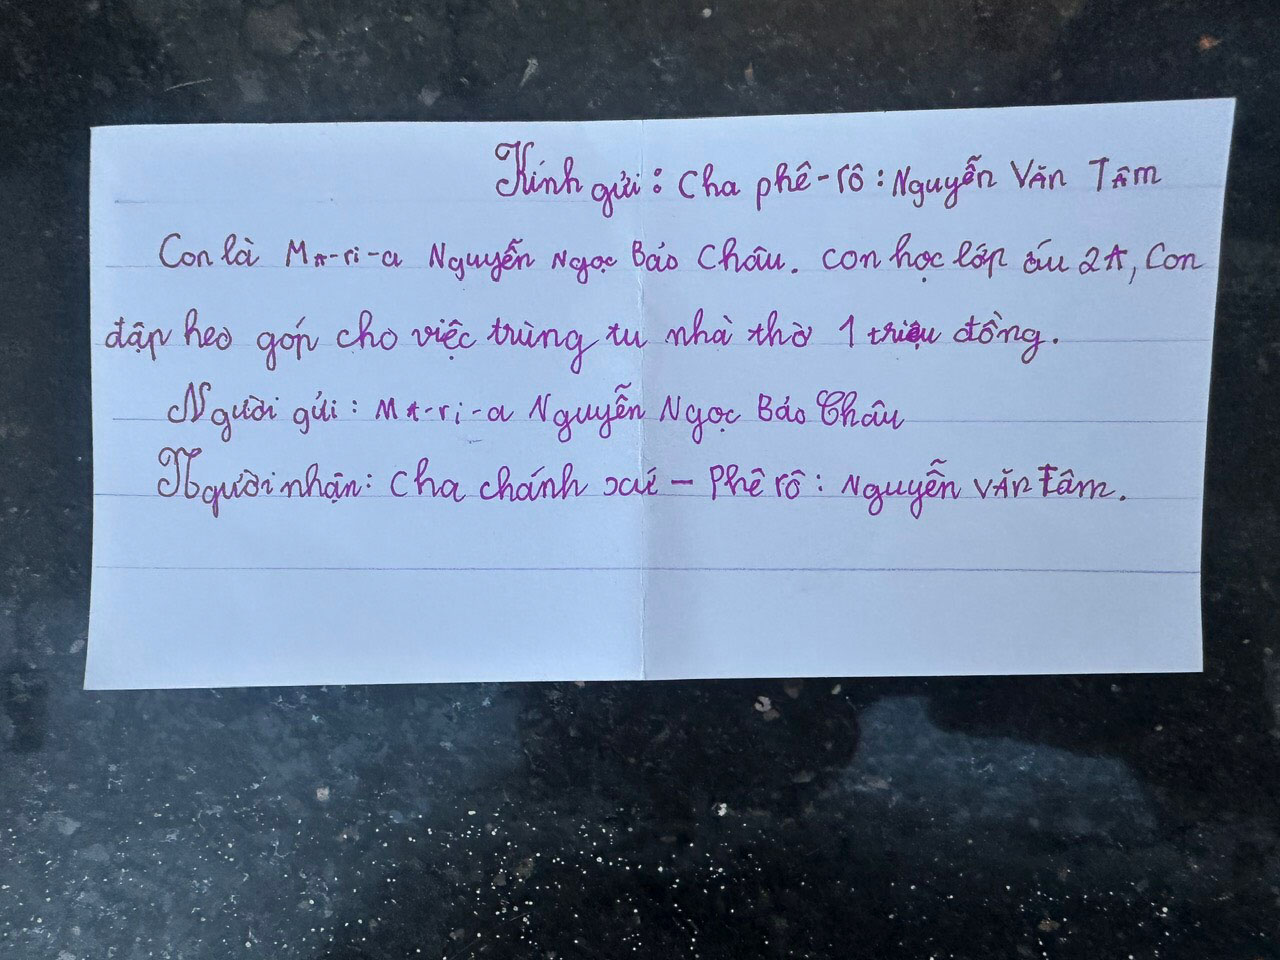 Kính gửi : Cha phê-rô : Nguyễn Văn Tâm
Con là Ma-ri-a Nguyễn Ngọc Bảo Châu. con học lớp ấu 2A, Con
đập heo góp cho việc trùng tu nhà thờ 1 triệu đồng.
Người gửi : Ma-ri-a Nguyễn Ngọc Bảo Châu
Người nhận : Cha chánh xứ - Phê rô : Nguyễn Văn Tâm.